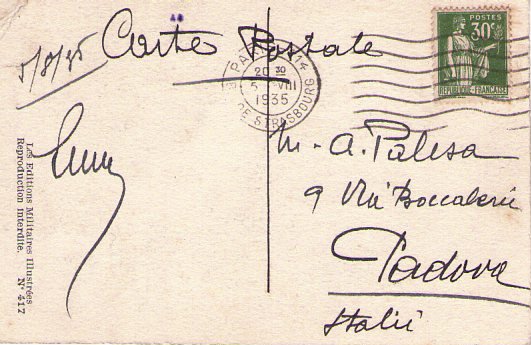 5/8/35
Carte Postale
POSTES
30c
REPUBLIQUE FRANÇAISE
PARIS 14
20 30
5 VIII
1935
DE STRASBOURG
M. A. Palesa
9 Via Boccalerie
Padova
Italie
Les Editions Militaires Illustrées
Reproduction interdite. N° 417